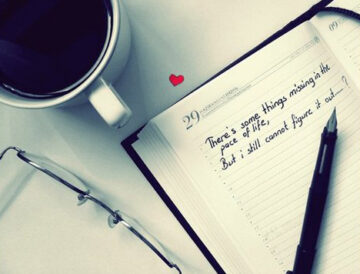 29
09
There's some things missing in the
pace of life,
But i still cannot figure it out.....?